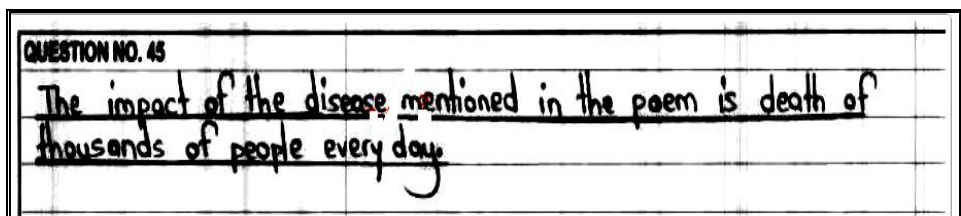 QUESTION NO. 45
The impact of the disease mentioned in the poem is death of
thousands of people every day.